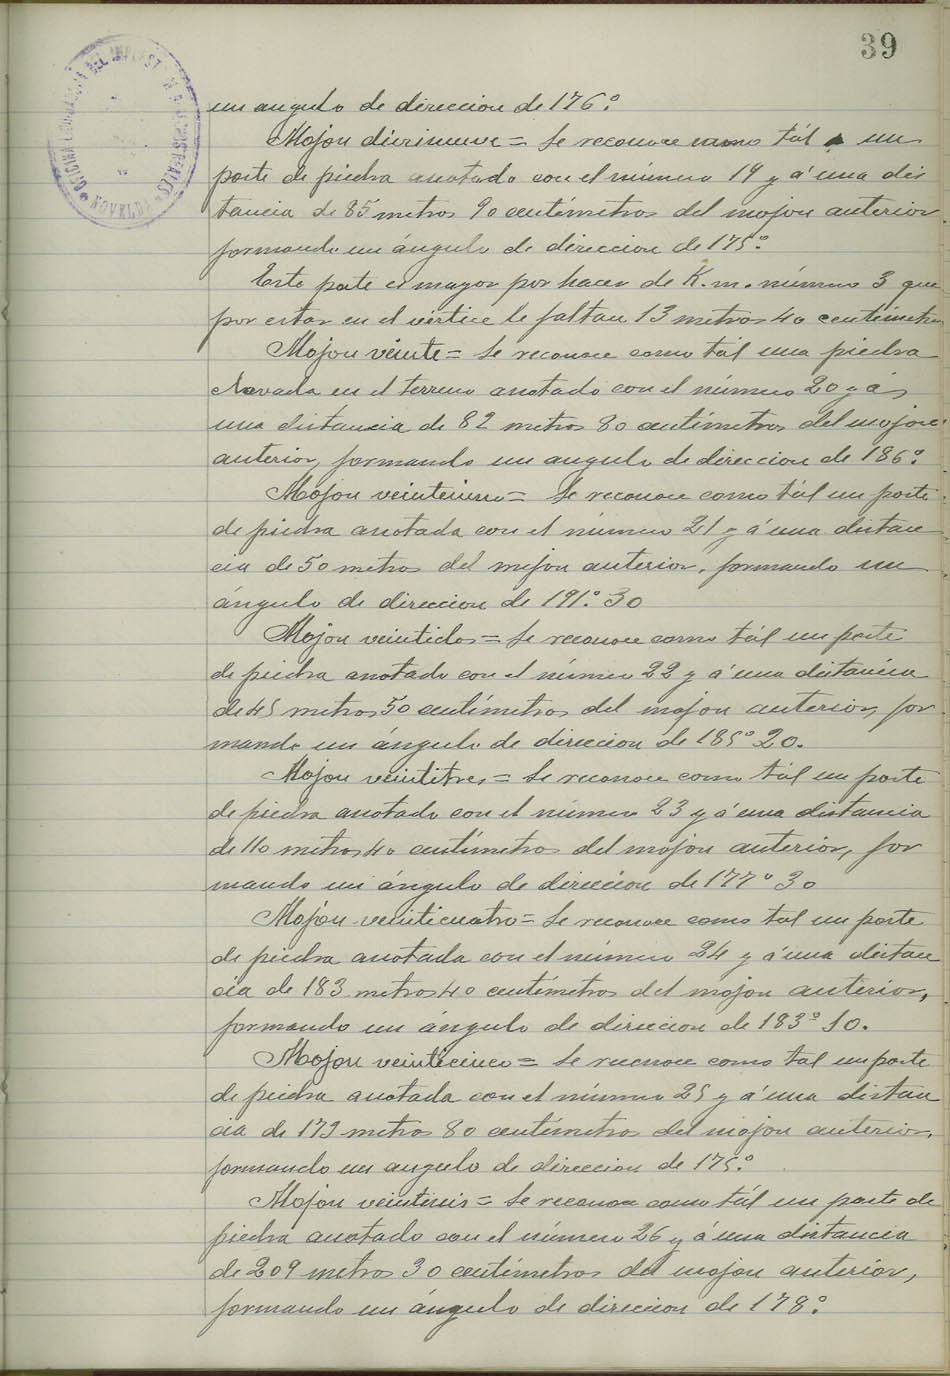 39
OFICINA LIQUIDADORA DEL IMPUESTO DE DERECHOS REALES
NOVELDA
un angulo de direccion de 176º
Mojon diecinueve = Se reconoce como tál un
poste de piedra anotado con el número 19 y á una dis
tancia de 85 metros 90 centímetros del mojon anterior
formando un ángulo de direccion de 175º
Este poste es mayor por hacer de K. m. número 3 que
por estar en el vértice le faltan 13 metros 40 centímetros
Mojon veinte = Se reconoce como tál una piedra
clavada en el terreno anotado con el número 20 y á
una distancia de 82 metros 80 centímetros del mojon
anterior, formando un angulo de direccion de 186º
Mojon veintiuno = Se reconoce como tál un poste
de piedra anotada con el número 21 y á una distan
cia de 50 metros del mojon anterior, formando un
ángulo de direccion de 191º 30
Mojon veintidos = Se reconoce como tál un poste
de piedra anotado con el número 22 y á una distancia
de 45 metros 50 centímetros del mojon anterior, for
mando un ángulo de direccion de 185º 20.
Mojon veintitres = Se reconoce como tál un poste
de piedra anotado con el número 23 y á una distancia
de 110 metros 40 centímetros del mojon anterior, for
mando un ángulo de direccion de 177º 30
Mojon veinticuatro = Se reconoce como tal un poste
de piedra anotada con el número 24 y á una distan
cia de 183 metros 40 centímetros del mojon anterior,
formando un ángulo de direccion de 183º 10.
Mojon veinticinco = Se reconoce como tal un poste
de piedra anotada con el número 25 y á una distan
cia de 173 metros 80 centímetros del mojon anterior,
formando un angulo de direccion de 175º
Mojon veintiseis = Se reconoce como tál un poste de
piedra anotado con el número 26 y á una distancia
de 209 metros 30 centímetros del mojon anterior,
formando un ángulo de direccion de 178º